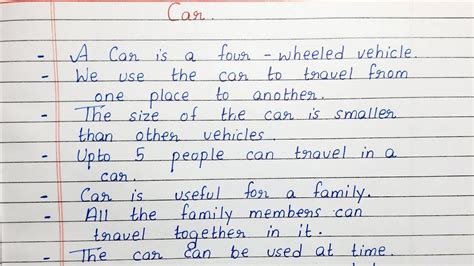 Car.
- A Car is a four-wheeled vehicle.
- We use the car to travel from
one place to another.
- The size of the car is smaller
than other vehicles.
- Upto 5 people can travel in a
car.
- Car is useful for a family.
- All the family members can
travel together in it.
- The car can be used at time.